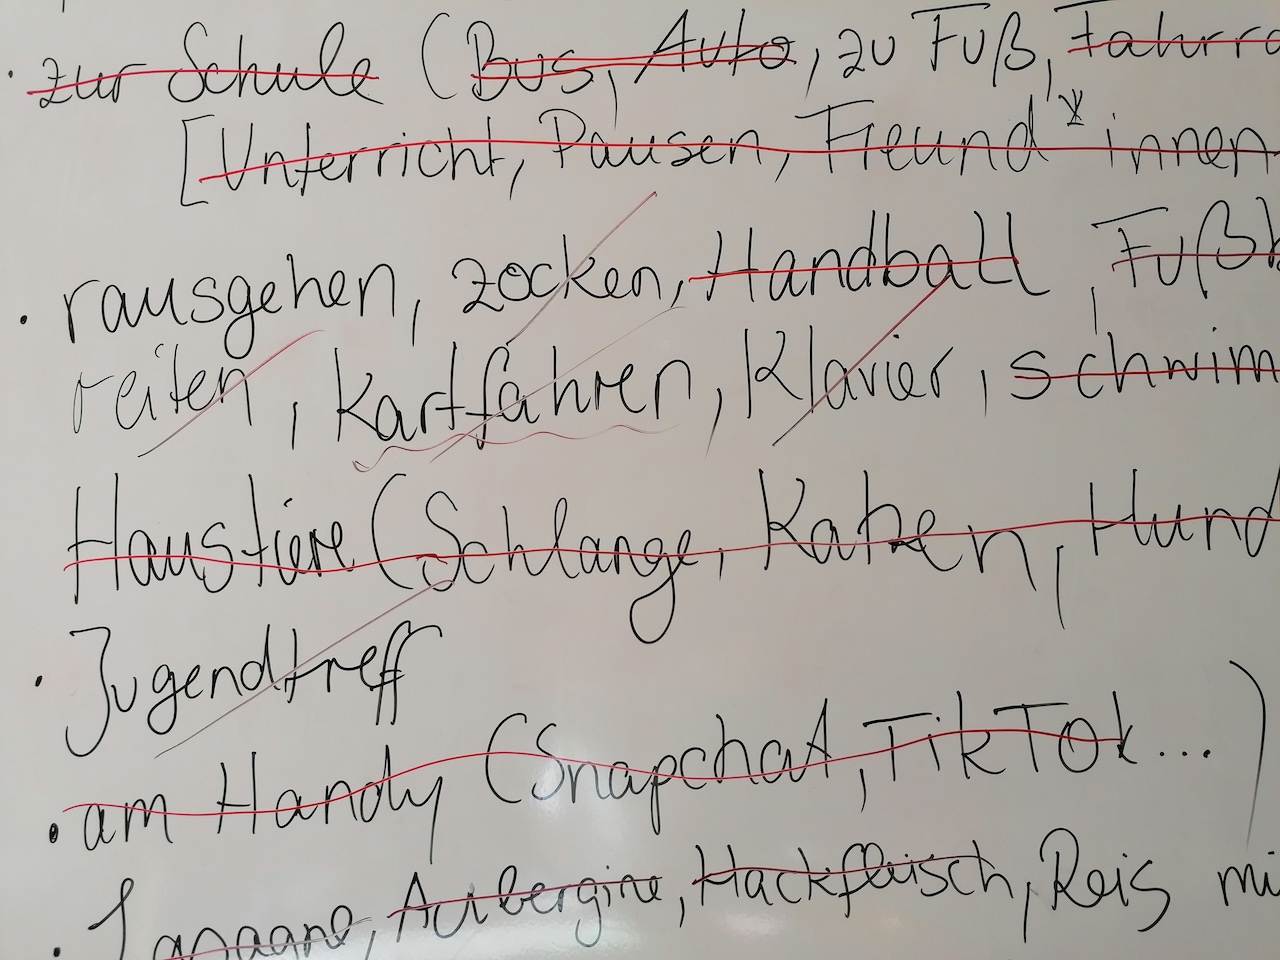 · zur Schule (Bus, Auto, zu Fuß, Fahrra
[Unterricht, Pausen, Freund*innen
· rausgehen, zocken, Handball, Fußb
reiten, Kartfahren, Klavier, schwim
Haustiere (Schlange, Katzen, Hund
· Jugendtreff
· am Handy (Snapchat, TikTok...)
· Lasagne, Aubergine, Hackfleisch, Reis mi